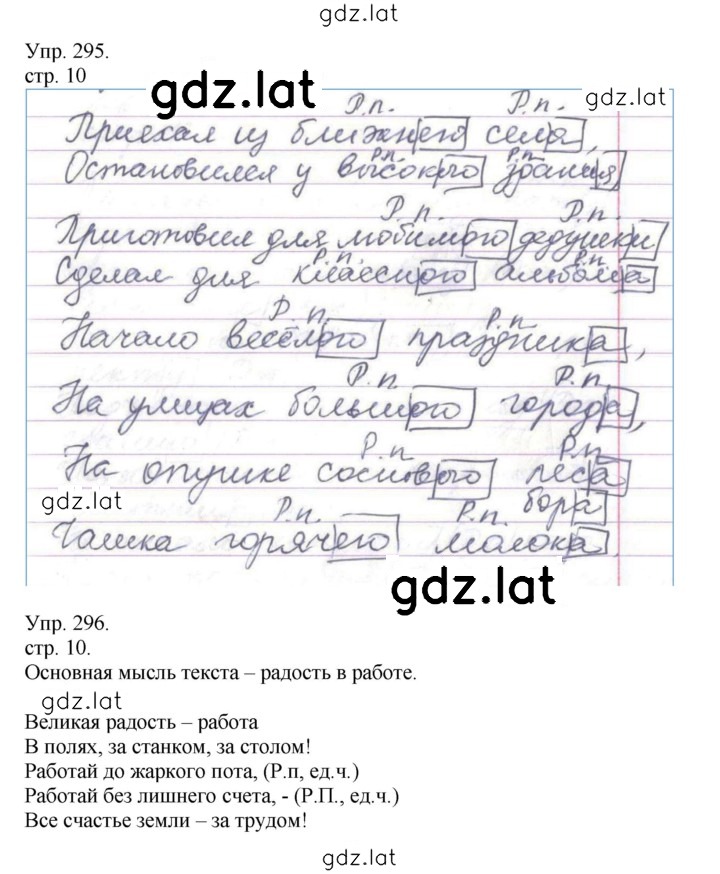 gdz.lat
Упр. 295.
стр. 10
gdz.lat
gdz.lat
Р.п. Р.п.
Приехал из ближнего села,
Р.п. Р.п.
Остановился у высокого здания
Р.п. Р.п.
Приготовил для любимого дедушки
Р.п. Р.п.
Сделал для классного альбома
Р.п. Р.п.
Начало весёлого праздника,
Р.п. Р.п.
На улицах большого города,
Р.п. Р.п.
На опушке соснового леса
gdz.lat
бора
Р.п. Р.п.
Чашка горячего молока.
gdz.lat
Упр. 296.
стр. 10.
Основная мысль текста – радость в работе.
gdz.lat
Великая радость – работа
В полях, за станком, за столом!
Работай до жаркого пота, (Р.п, ед.ч.)
Работай без лишнего счета, - (Р.П., ед.ч.)
Все счастье земли – за трудом!
gdz.lat